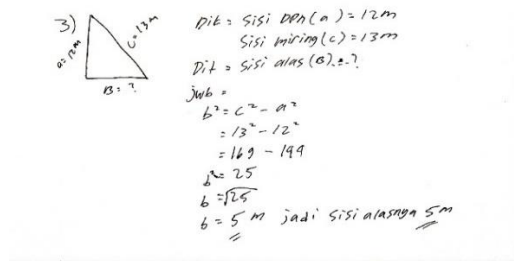 3)
a = 12m
c = 13m
B = ?
Dik = Sisi Dpn (a) = 12m
Sisi miring (c) = 13m
Dit = Sisi alas (B) ..?
jwb =
b² = c² - a²
= 13² - 12²
= 169 - 144
b² = 25
b = √25
b = 5 m jadi sisi alasnya 5m